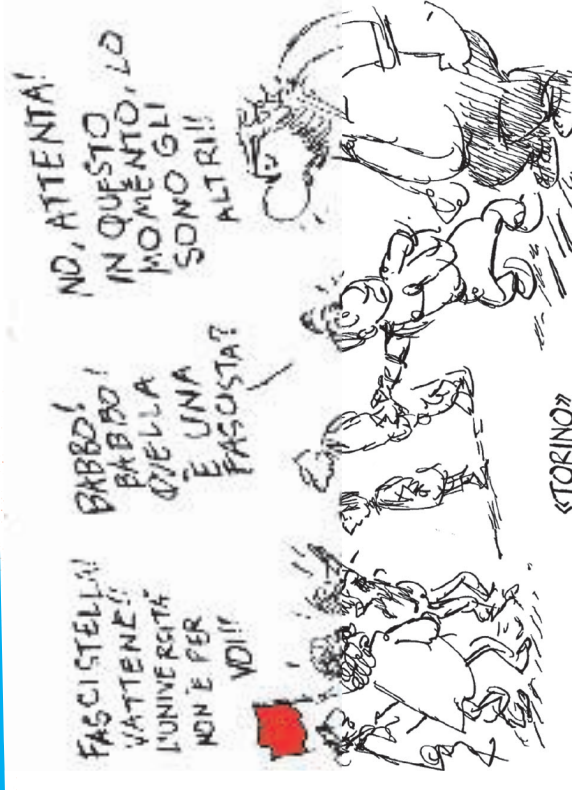 FASCISTELLA!
VATTENE!!
L'UNIVERSITÀ
NON È PER
VOI!!
BABBO!
BABBO!
QUELLA
È UNA
FASCISTA?
NO, ATTENTA!
IN QUESTO
MOMENTO, LO
SONO GLI
ALTRI!!
«TORINO»